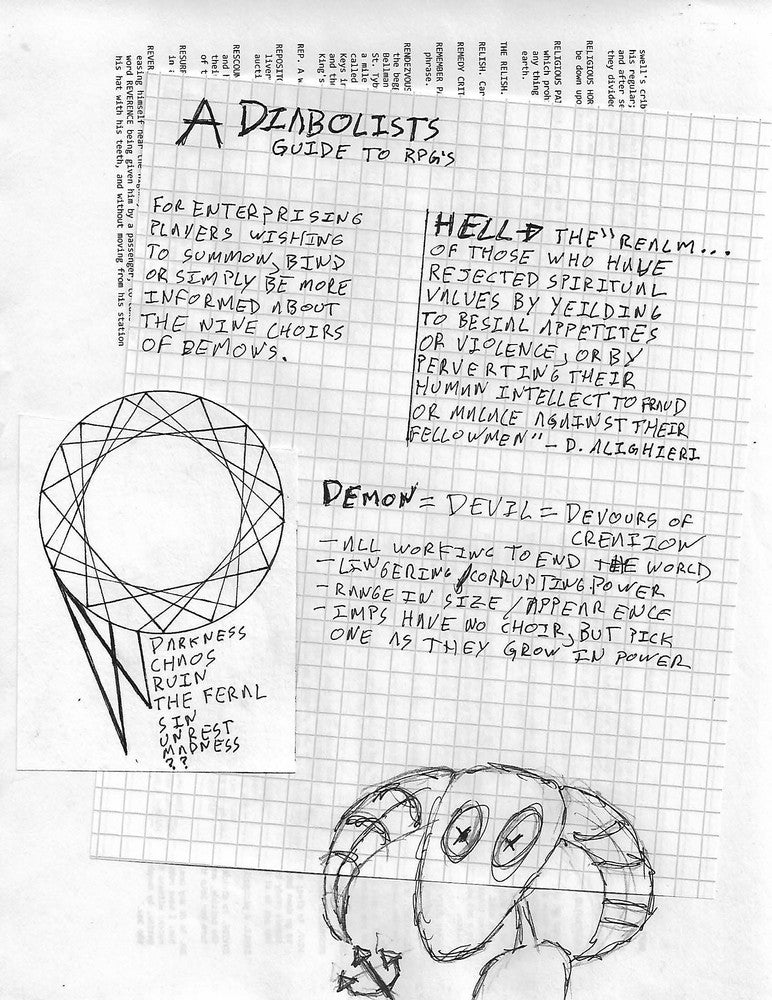 swell's crib
his regular;
and after se
they divide
RELIGIOUS HOR
be down upo
RELIGIOUS PAI
which proh
any thing
earth.
THE RELISH.
RELISH. Car
REMEDY CRIT
REMEMBER PA
phrase.
RENDEZVOUS
the begg
Bellman
St. Tyb
a mile
called
Keys i
and th
King's
REP. A w
REPOSIT
liver
aucti
RESCOU
and
thei
of t
RESUR
in
REVER
easing himself near the
word REVERENCE being given him by a passenger, to
his hat with his teeth, and without moving from his station
A DIABOLISTS
GUIDE TO RPG'S
FOR ENTERPRISING
PLAYERS WISHING
TO SUMMON, BIND
OR SIMPLY BE MORE
INFORMED ABOUT
THE NINE CHOIRS
OF DEMONS.
HELL → THE "REALM...
OF THOSE WHO HAVE
REJECTED SPIRITUAL
VALUES BY YEILDING
TO BESIAL APPETITES
OR VIOLENCE, OR BY
PERVERTING THEIR
HUMAN INTELLECT TO FRAUD
OR MALACE AGAINST THEIR
FELLOWMEN" - D. ALIGHIERI
DEMON = DEVIL = DEVOURS OF
CREATION
- ALL WORKING TO END THE WORLD
- LINGERING CORRUPTING POWER
- RANGE IN SIZE / APPEARENCE
- IMPS HAVE NO CHOIR, BUT PICK
ONE AS THEY GROW IN POWER
DARKNESS
CHAOS
RUIN
THE FERAL
SIN
UNREST
MADNESS
??